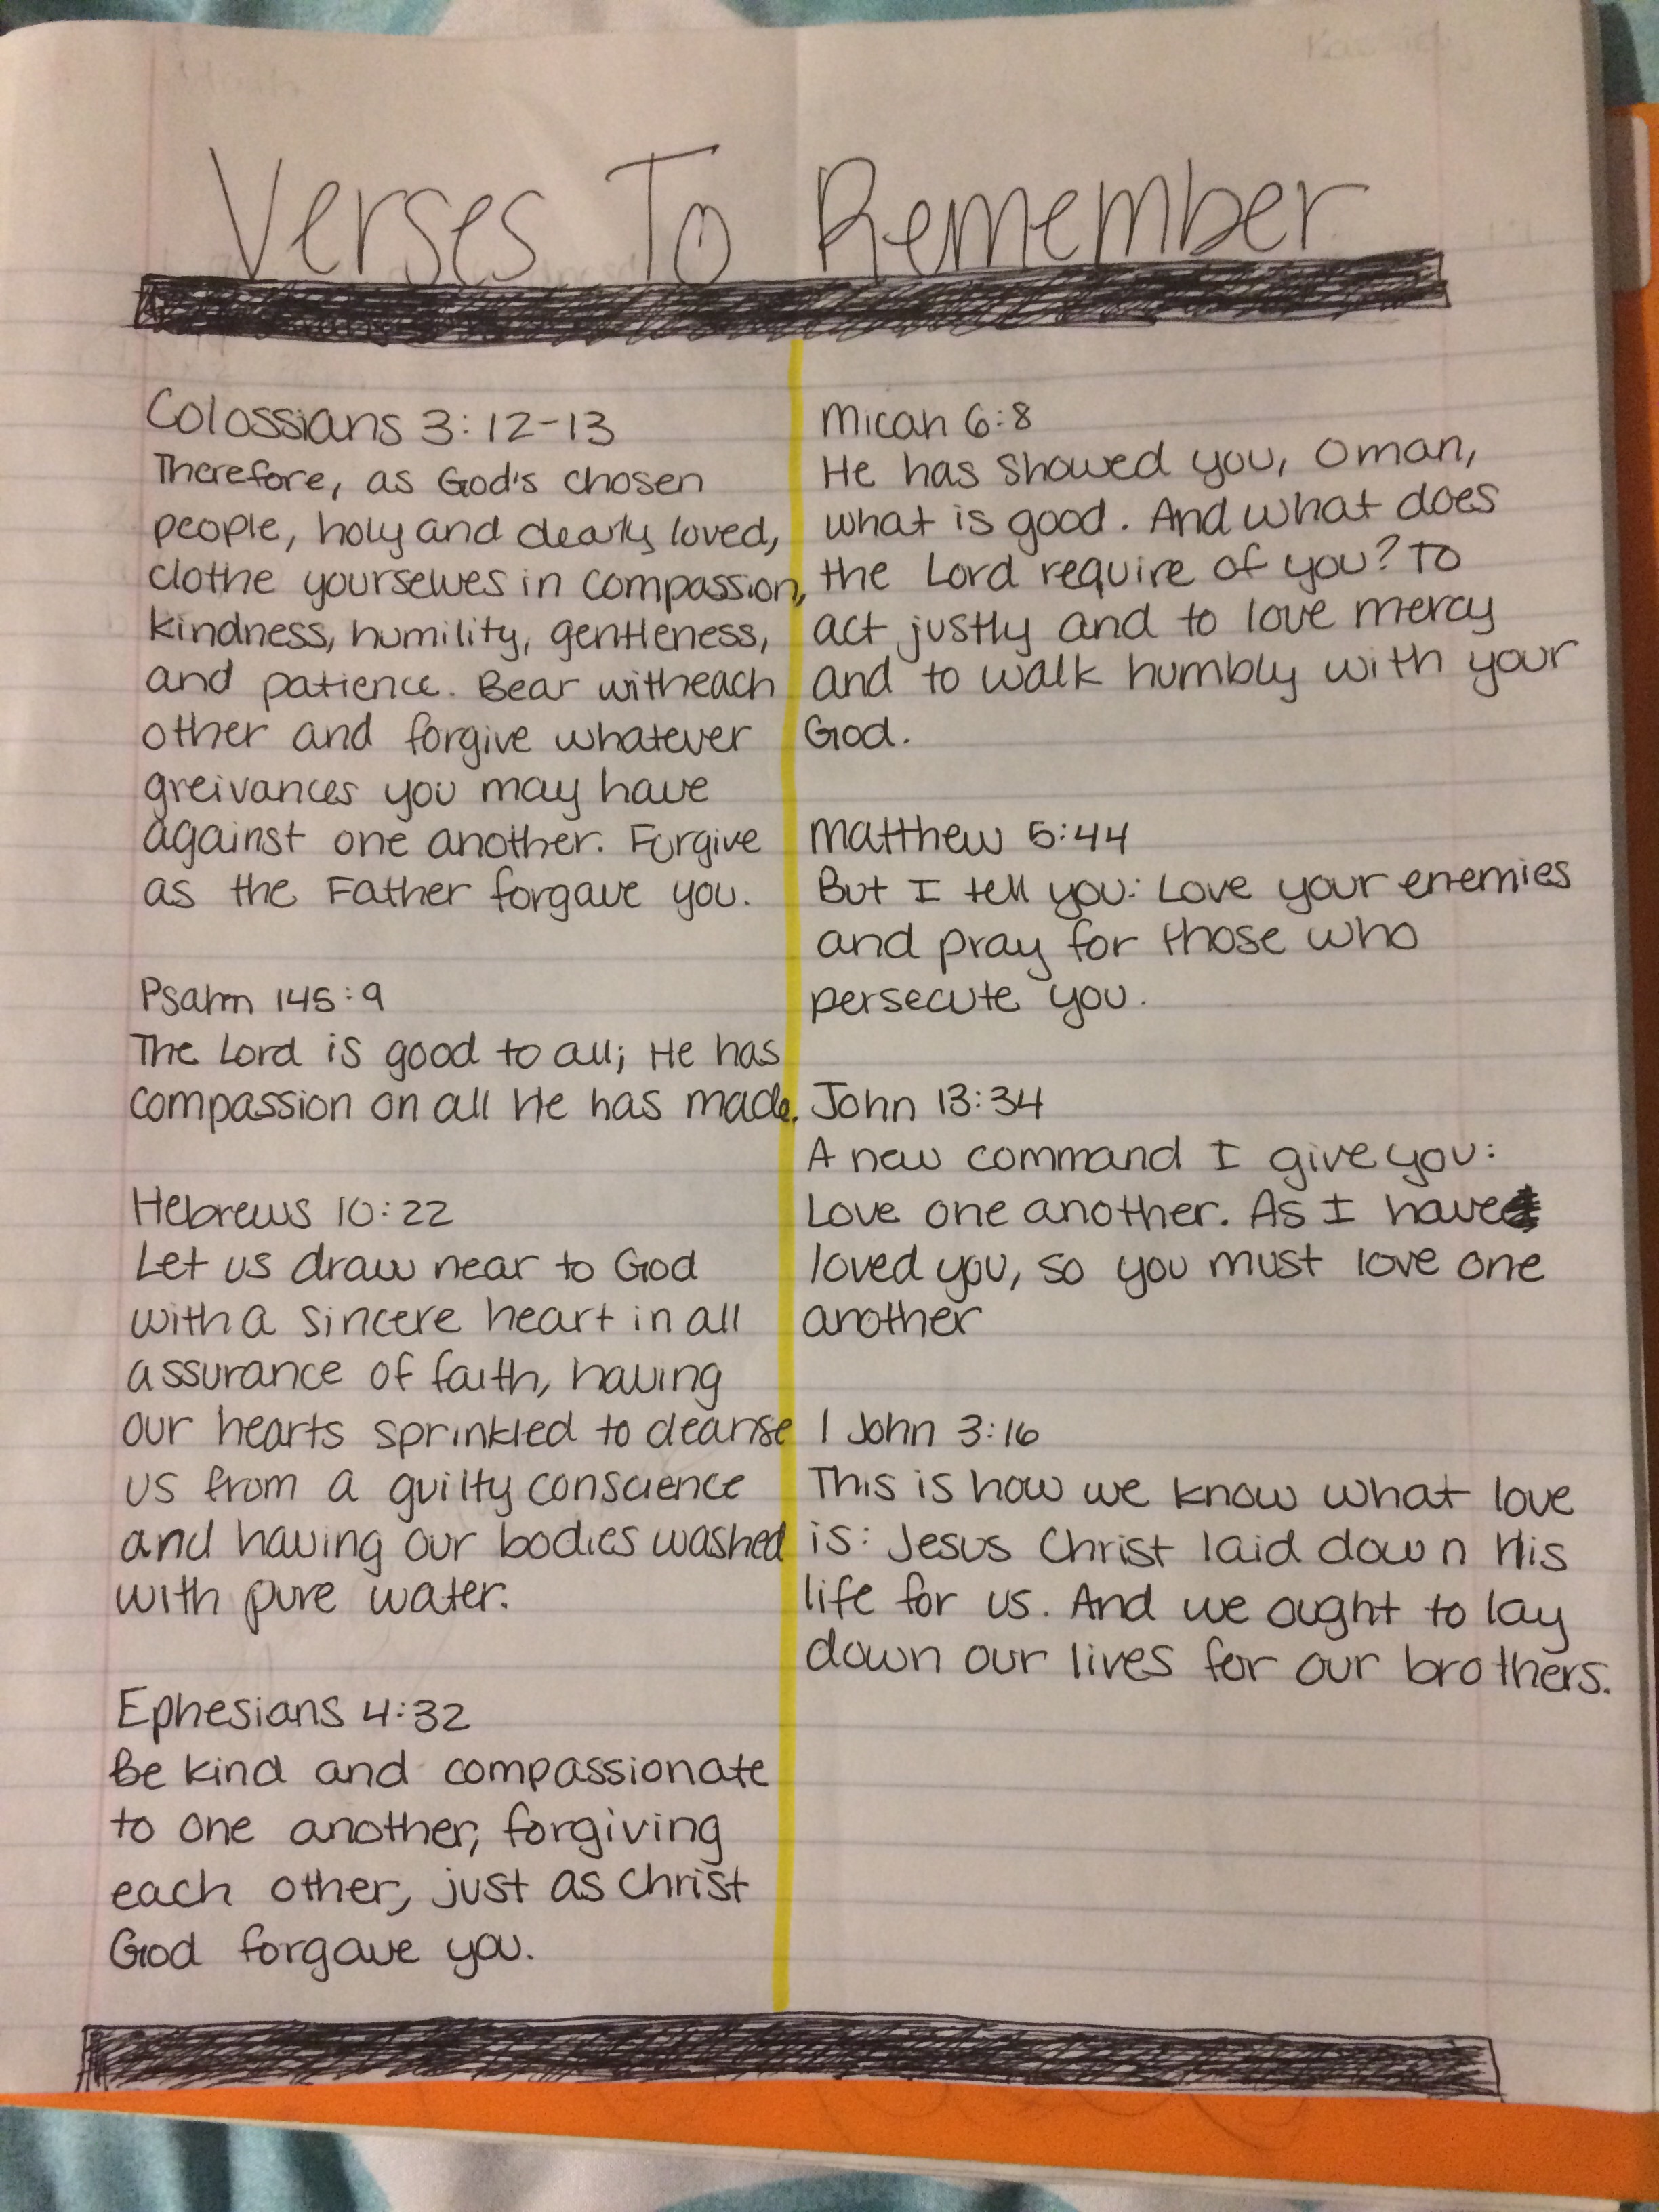 Verses To Remember
Colossians 3:12-13
Therefore, as God's chosen
people, holy and dearly loved,
clothe yourselves in compassion,
kindness, humility, gentleness,
and patience. Bear with each
other and forgive whatever
greivances you may have
against one another. Forgive
as the Father forgave you.
Psalm 145:9
The Lord is good to all; He has
compassion on all He has made.
Hebrews 10:22
Let us draw near to God
with a sincere heart in all
assurance of faith, having
our hearts sprinkled to cleanse
us from a guilty conscience
and having our bodies washed
with pure water.
Ephesians 4:32
Be kind and compassionate
to one another, forgiving
each other, just as Christ
God forgave you.
Micah 6:8
He has showed you, O man,
what is good. And what does
the Lord require of you? To
act justly and to love mercy
and to walk humbly with your
God.
Matthew 5:44
But I tell you: Love your enemies
and pray for those who
persecute you.
John 13:34
A new command I give you:
Love one another. As I have
loved you, so you must love one
another
1 John 3:16
This is how we know what love
is: Jesus Christ laid down His
life for us. And we ought to lay
down our lives for our brothers.